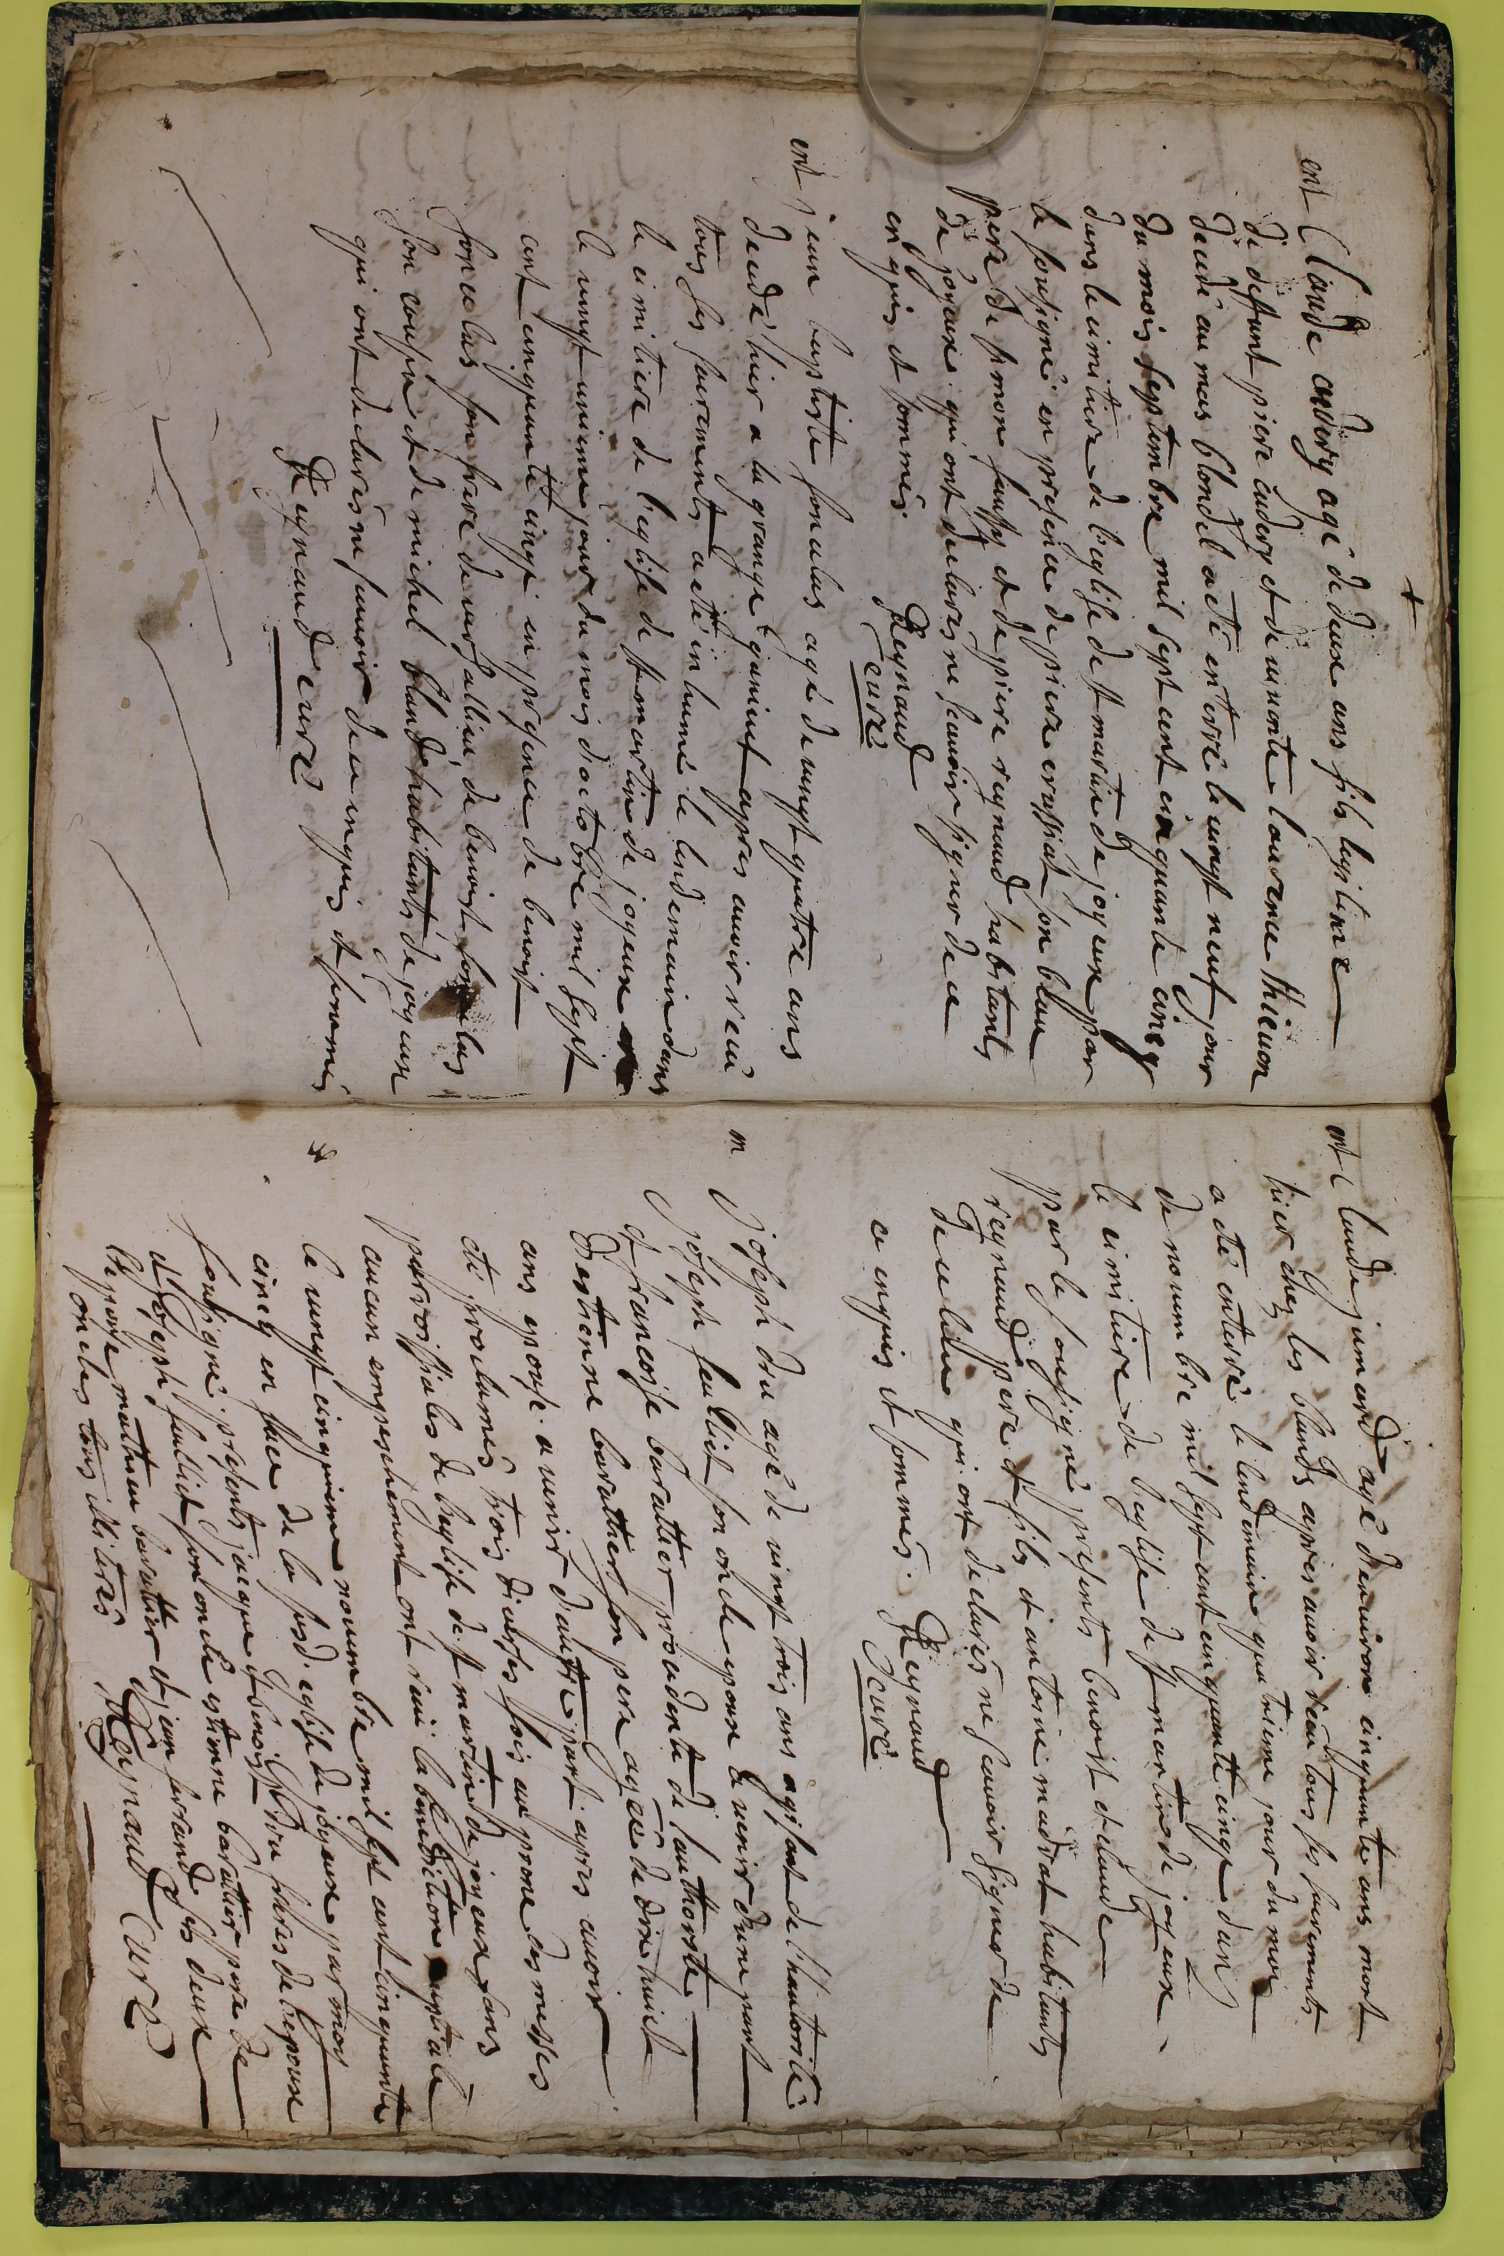 +
ent Claude audery agé de deux ans fils legitime
de deffunt piere audery et de rimonte laurence thievon
decedé au mas blondel a été enterré le vingt neuf jour
du mois septembre mil sept cent cinquante cinq
dans le cimitiere de leglise de st martin de joyeux par
le sousigné en presence de piere crassiat son beau
pere de simon faussy et de piere reynaud habitants
de joyeux qui ont declares ne scavoir signer de ce
enquis et sommés. Reynaud
curé
ent jean baptiste foncelas agé de vingt quattre ans
decedé hier a la grange guinint apres avoir receu
tous ses sacrements a eté inhumé le lendemain dans
le cimitiere de leglise de st martin de joyeux
le vingt unieme jour du mois doctobre mil sept
cent cinquante cinq en presence de benoist
foncelas son frere de versallieu, de benoist foncelas
son cousin et de michel bland habitants de joyeux
qui ont declarés ne scavoir de ce enquis et sommés
Reynaud curé
ent Claude jumeard agé denviron cinquante ans mort
hier chez les blands apres avoir receu tous ses sacrements
a eté enterré le lendemain quatrieme jour du moi
de novembre mil sept cent cinquante cinq dans
le cimitiere de leglise de st martin de joyeux
par le sousigné presents benoist et claude
reynaud pere et fils et antoine midrat habitants
de ce lieu qui ont declarés ne scavoir signer de
ce enquis et sommés. Reynaud
curé
m joseph dru agé de vingt trois ans agissant de l'hautorité
joseph feulliet son oncle epoux a venir dune part
et francoise barattier procedente de lauthorite
destienne barattier son pere agee de dix huict
ans epouse a venir dautre part apres avoir
eté proclamés trois diverses fois au prone des messes
parroissiales de leglise de st martin de joyeux sans
aucun empeschement ont receu la benediction nuptiale
le vingt cinquieme novembre mil sept cent cinquante
cinq en face de la susd. eglise de joyeux par moy
sousigné presents jacque et benoist dru freres de lepoux
et joseph feulliet son oncle estienne barattier pere de
lepouse mathieu barattier et jean ferrand ses deux
oncles tous illiterés Raynaud Curé